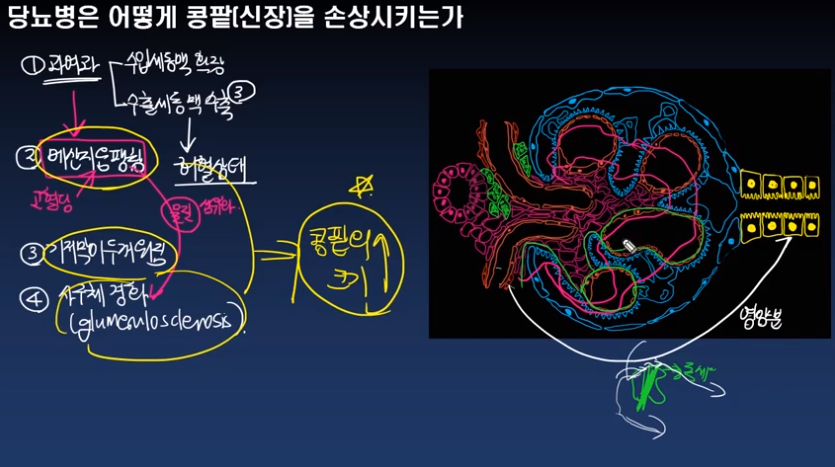 당뇨병은 어떻게 콩팥(신장)을 손상시키는가
① 과여과
수입세동맥 확장
수출세동맥 수축 ③
② 메산지움팽창
허혈상태
고혈당
물질
③ 기저막이 두꺼워짐
④ 사구체 경화
(glumeculosclerosis)
콩팥의
크기
영양분